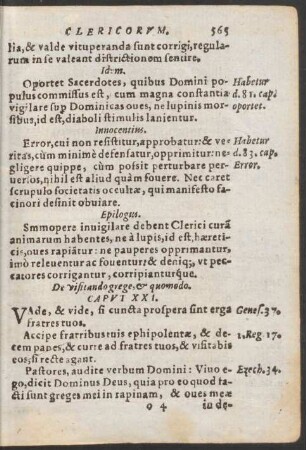 CLERICORVM. 565
lia, & valde vituperanda sunt corrigi, regula-
rum in se valeant districtionem sentire.
Idem.
Oportet Sacerdotes, quibus Domini po- Habetur
pulus commissus est, cum magna constantia d. 81. cap.
vigilare sup Dominicas oues, ne lupinis mor- oportet.
sibus, id est, diaboli stimulis lanientur.
Innocentius.
Error, cui non resistitur, approbatur: & ve- Habetur
ritas, cùm minimè defensatur, opprimitur: ne- d. 83. cap.
gligere quippe, cùm possit perturbare per- Error.
uersos, nihil est aliud quàm fouere. Nec caret
scrupulo societatis occultæ, qui manifesto fa-
cinori desinit obuiare.
Epilogus.
Smmopere inuigilare debent Clerici curã
animarum habentes, ne à lupis, id est, hæreti-
cis, oues rapiãtur: ne pauperes opprimantur,
imò releuentur ac foueantur: & deniq; vt pec-
catores corrigantur, corripianturque.
De visitando grege, & quomodo.
CAPVT XXI.
VAde, & vide, si cuncta prospera sint erga Genes. 37.
fratres tuos.
Accipe fratribus tuis ephi polentæ, & de- 1. Reg. 17.
cem panes, & curre ad fratres tuos, & visitabis
eos, si recte agant.
Pastores, audite verbum Domini: Viuo e- Ezech. 34.
go, dicit Dominus Deus, quia pro eo quod fa-
cti sunt greges mei in rapinam, & oues meæ
o 4 in de-